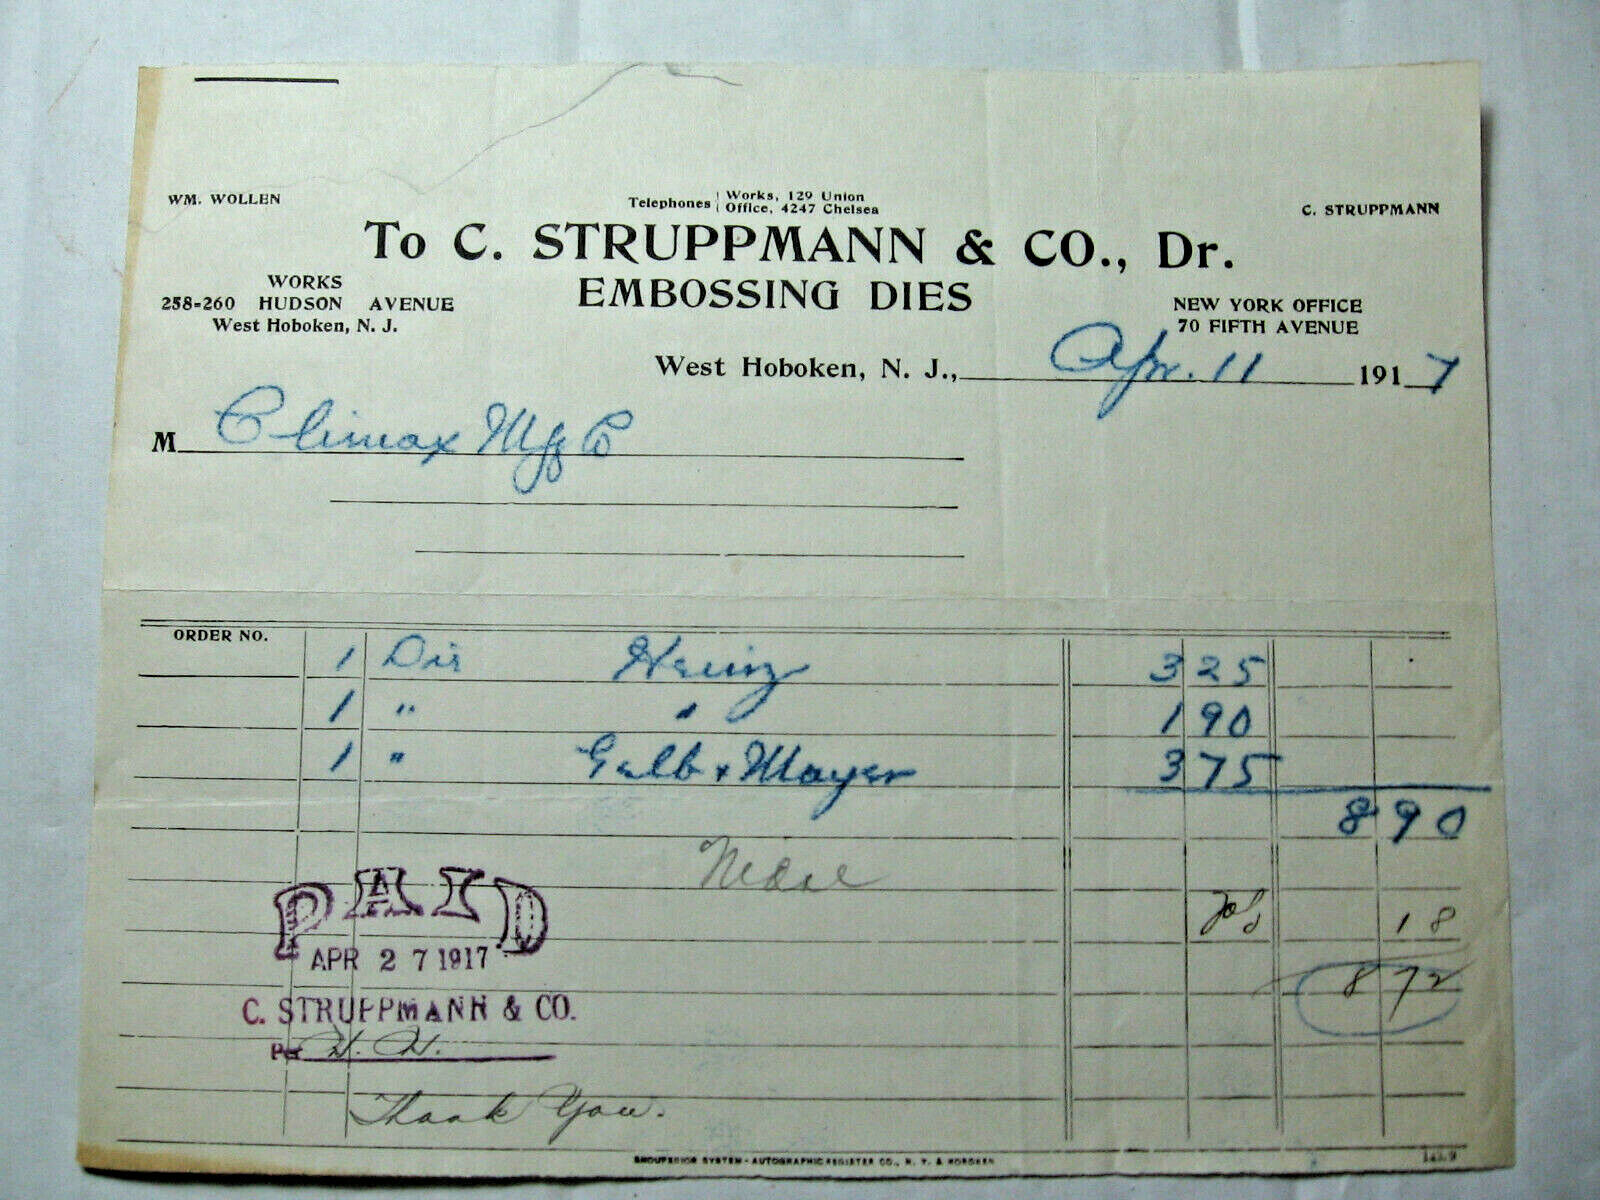 WM. WOLLEN
Telephones Works, 129 Union
Office, 4247 Chelsea
C. STRUPPMANN
To C. STRUPPMANN & CO., Dr.
EMBOSSING DIES
WORKS
258-260 HUDSON AVENUE
West Hoboken, N. J.
NEW YORK OFFICE
70 FIFTH AVENUE
West Hoboken, N. J., Apr. 11 1917
M Climax Mfg Co
ORDER NO.
1 Die Heinz 3 25
1 " " 1 90
1 " Gelb & Mayer 3 75
8 90
18
8 72
PAID
APR 27 1917
C. STRUPPMANN & CO.
Per H. H.
Thank You.
SYSTEM - AUTOGRAPHIC REGISTER CO., N. Y. & HOBOKEN